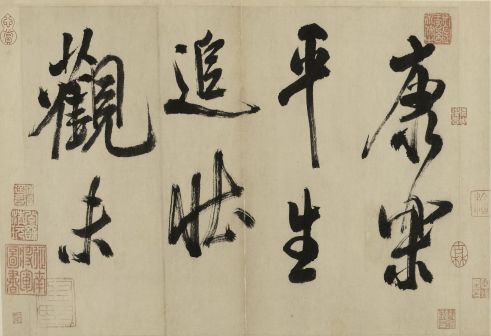 康樂
平生
追壯
觀未